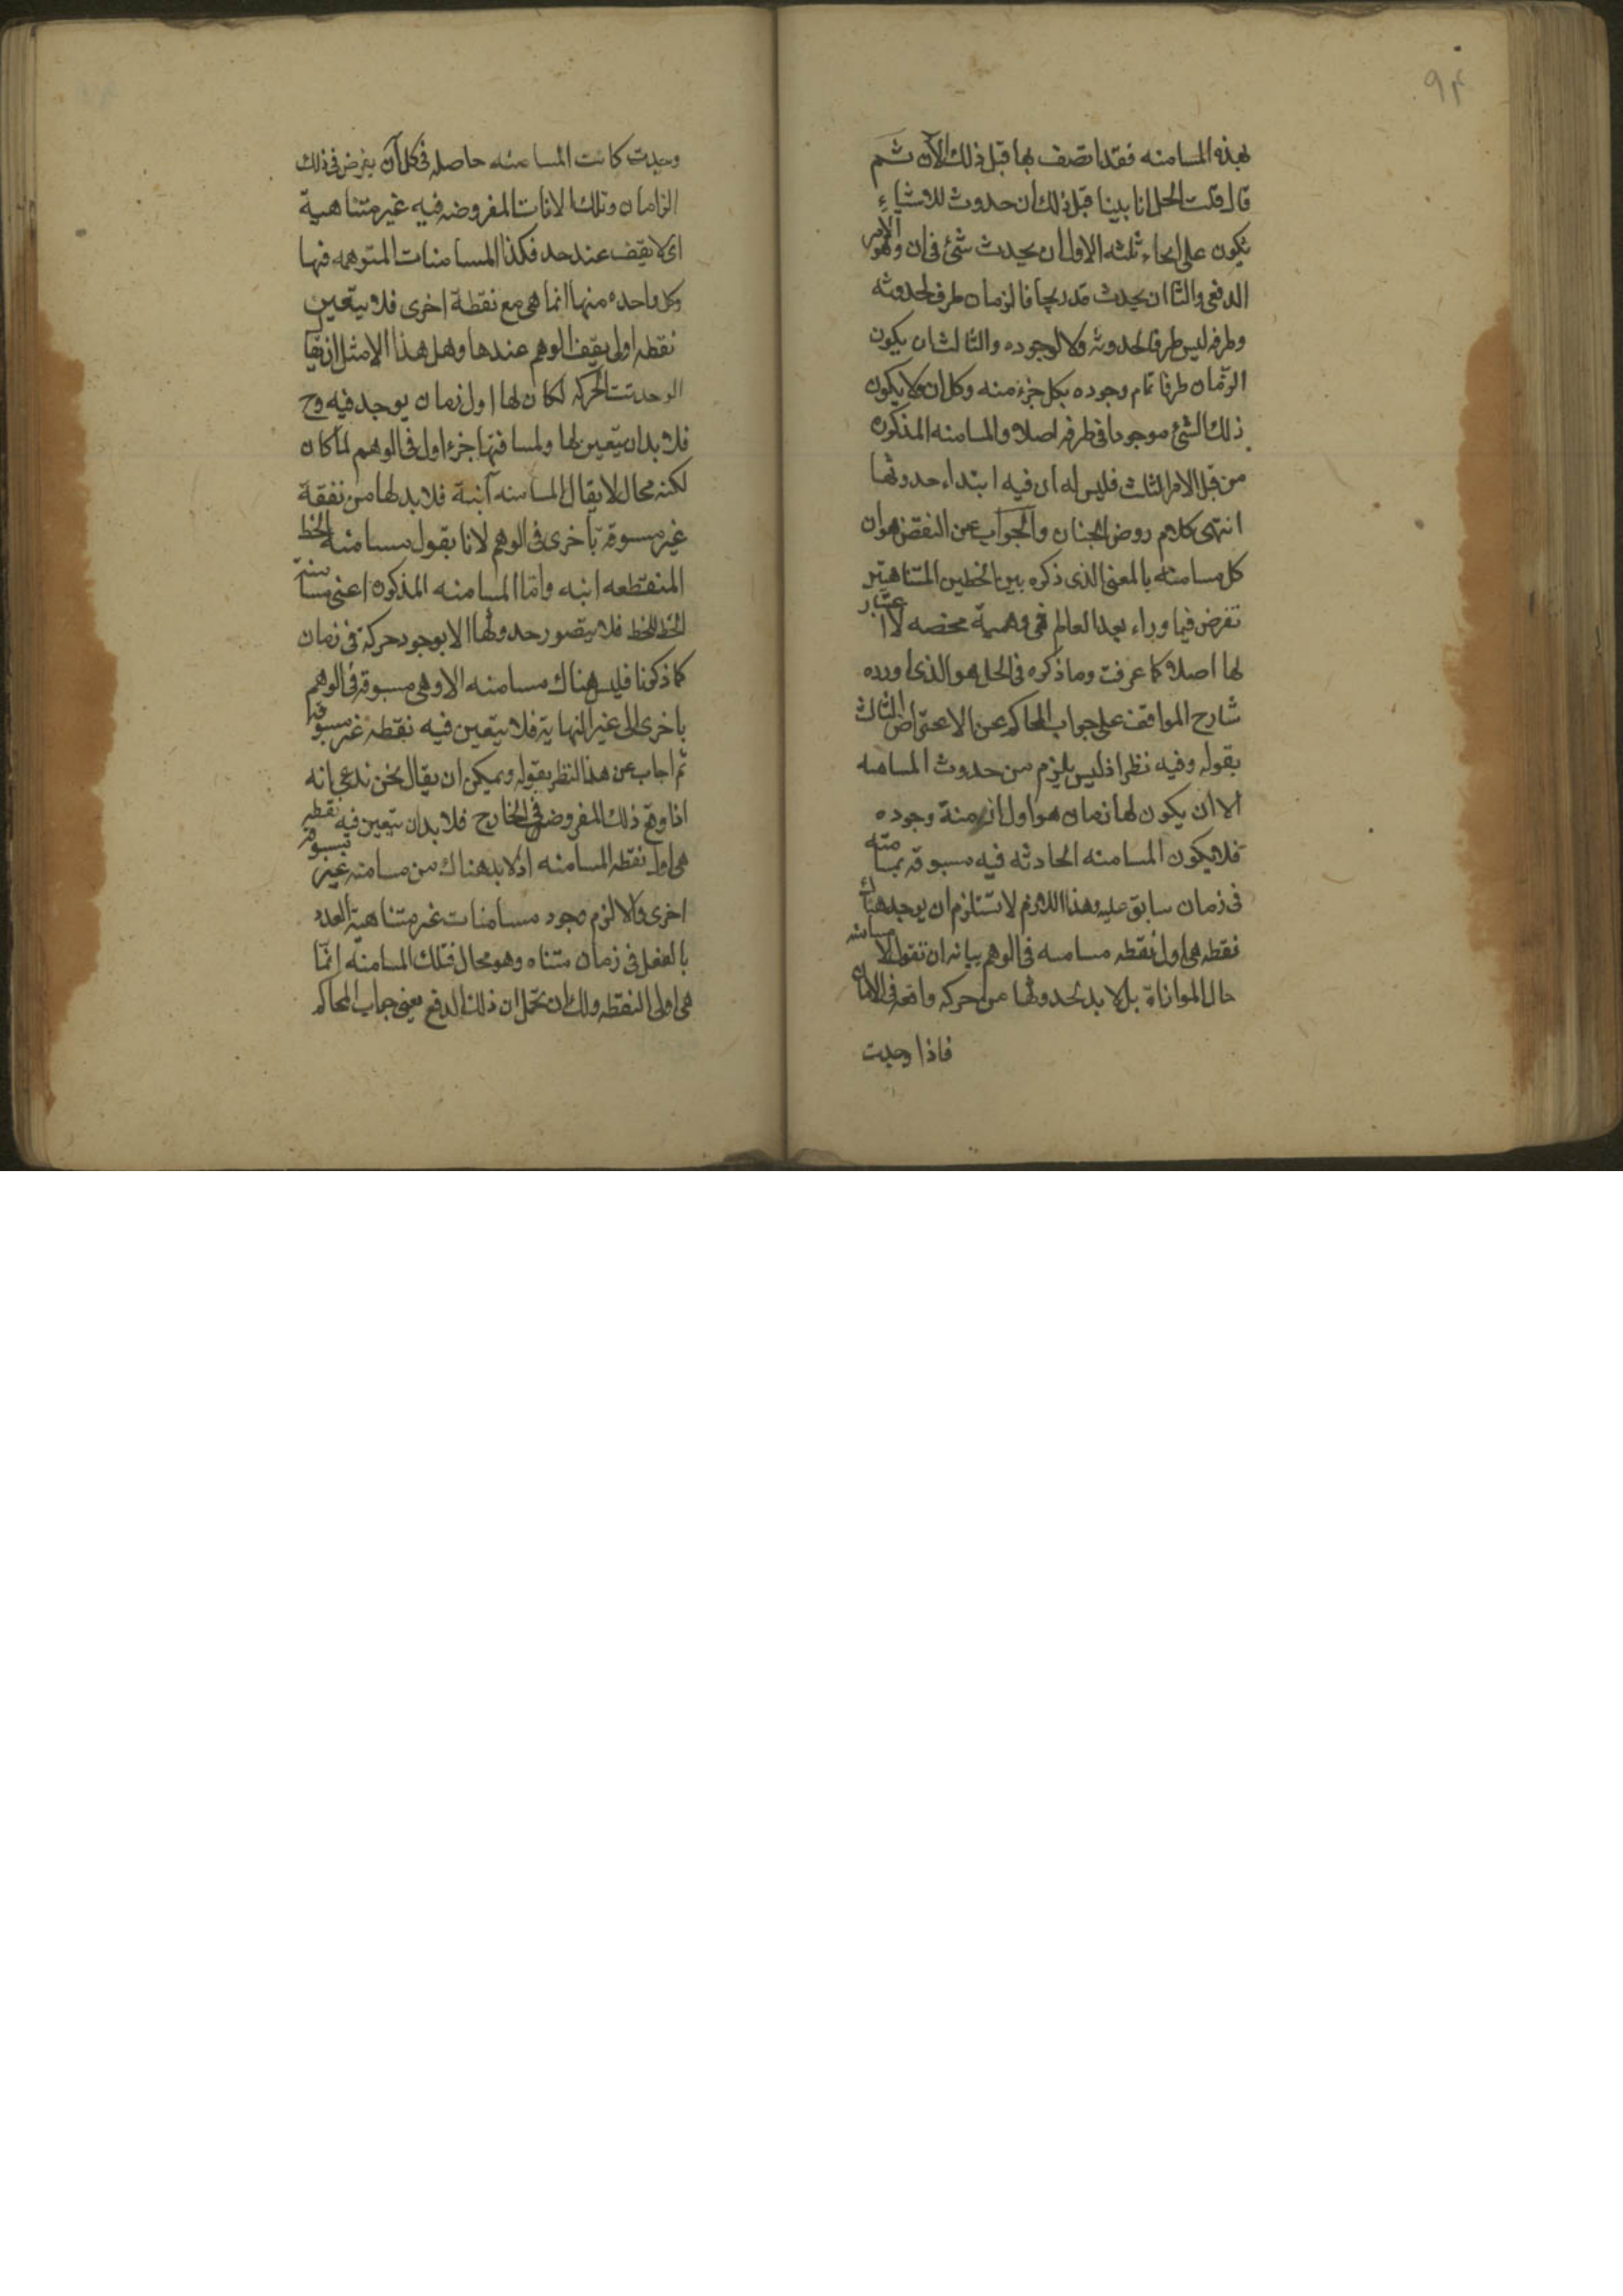 ٩۴
بهذه المسامته فقد اتصف بها قبل ذلك الآن ثم
قال قلت الحل انا بينا قبل ذلك ان حدوث للاشياء
يكون على انحاء ثلثه الاول ان يحدث شئ فى ان وهو الامر
الدفعى والثا ان يحدث تدريجا فالزمان طرف لحدوثه
وطرفه ليس طرفا لحدوثه ولا لوجوده والثالث ان يكون
الزمان طرفا تمام وجوده بكل جزء منه وكل ان ولا يكون
ذلك الشئ موجودا فى طرفه اصلا والمسامته المذكوره
من قبل الامر الثالث فليس له ان فيه ابتداء حدوثها
انتهى كلام روض الجنان والجواب عن النقض هو ان
كل مسامته بالمعنى الذى ذكره بين الخطين المتناهيين
تفرض فيما وراء بعد العالم فهى وهمية محضه لا اعتبار
لها اصلا كما عرفت وما ذكره فى الحل هو الذى اورده
شارح المواقف على جواب المحاكم عن الاعتراض الثالث
بقوله وفيه نظر اذ ليس يلزم من حدوث المسامته
الا ان يكون لها زمان هو اول ازمنة وجوده
فلا يكون المسامته الحادثه فيه مسبوقه بمسامته
فى زمان سابق عليه وهذا اللازم لا تستلزم ان يوجد هناك
نقطه هى اول نقطه مسامته فى الوهم بيانه ان تقول لا مسامته
حال الموازاة بل لا بد لحدوثها من حركه واقعه فى
فاذا وجدت
وجدت كانت المسامته حاصله فى كل آن يفرض فى ذلك
الزمان وتلك الانات المفروضه فيه غير متناهية
اى لا يقف عند حد فكذا المسامتات المتوهمه فيها
وكل واحده منها انما هى مع نقطة اخرى فلا يتعين
نقطه اولى يقف الوهم عندها وهل هذا الا مثل ان يقا
الوحدتت الحركه لكان لها اول زمان يوجد فيه وح
فلا بد ان يتعين لها ولمسافتها جزء اول فى الوهم لما كان
لكنه محال لا يقال المسامته آنية فلا بد لها من نقطة
غير مسبوقة باخرى فى الوهم لانا نقول مسامته الخط
المنقطعه انيه واما المسامته المذكوره اعنى مسامتة
الخط للخط فلا يتصور حدوثها الا بوجود حركة فى زمان
كما ذكرنا فليس هناك مسامته الا وهى مسبوقه فى الوهم
باخرى الى غير النهاية فلا يتعين فيه نقطه غير مسبوقه
ثم اجاب عن هذا النظر بقوله ويمكن ان يقال نحن ندعى انه
اذا وقع ذلك المفروض فى الخارج فلا بد ان يتعين فيه نقطه
هى اول نقطه المسامته اذ لا بد هناك من مسامته غير مسبوقه
اخرى والا لزم وجود مسامتات غير متناهية العدد
بالفعل فى زمان متناه وهو محال فتلك المسامتة انما
هى اولى النقطه ولك ان تحمل ان ذلك الدفع يعنى جواب المحاكم